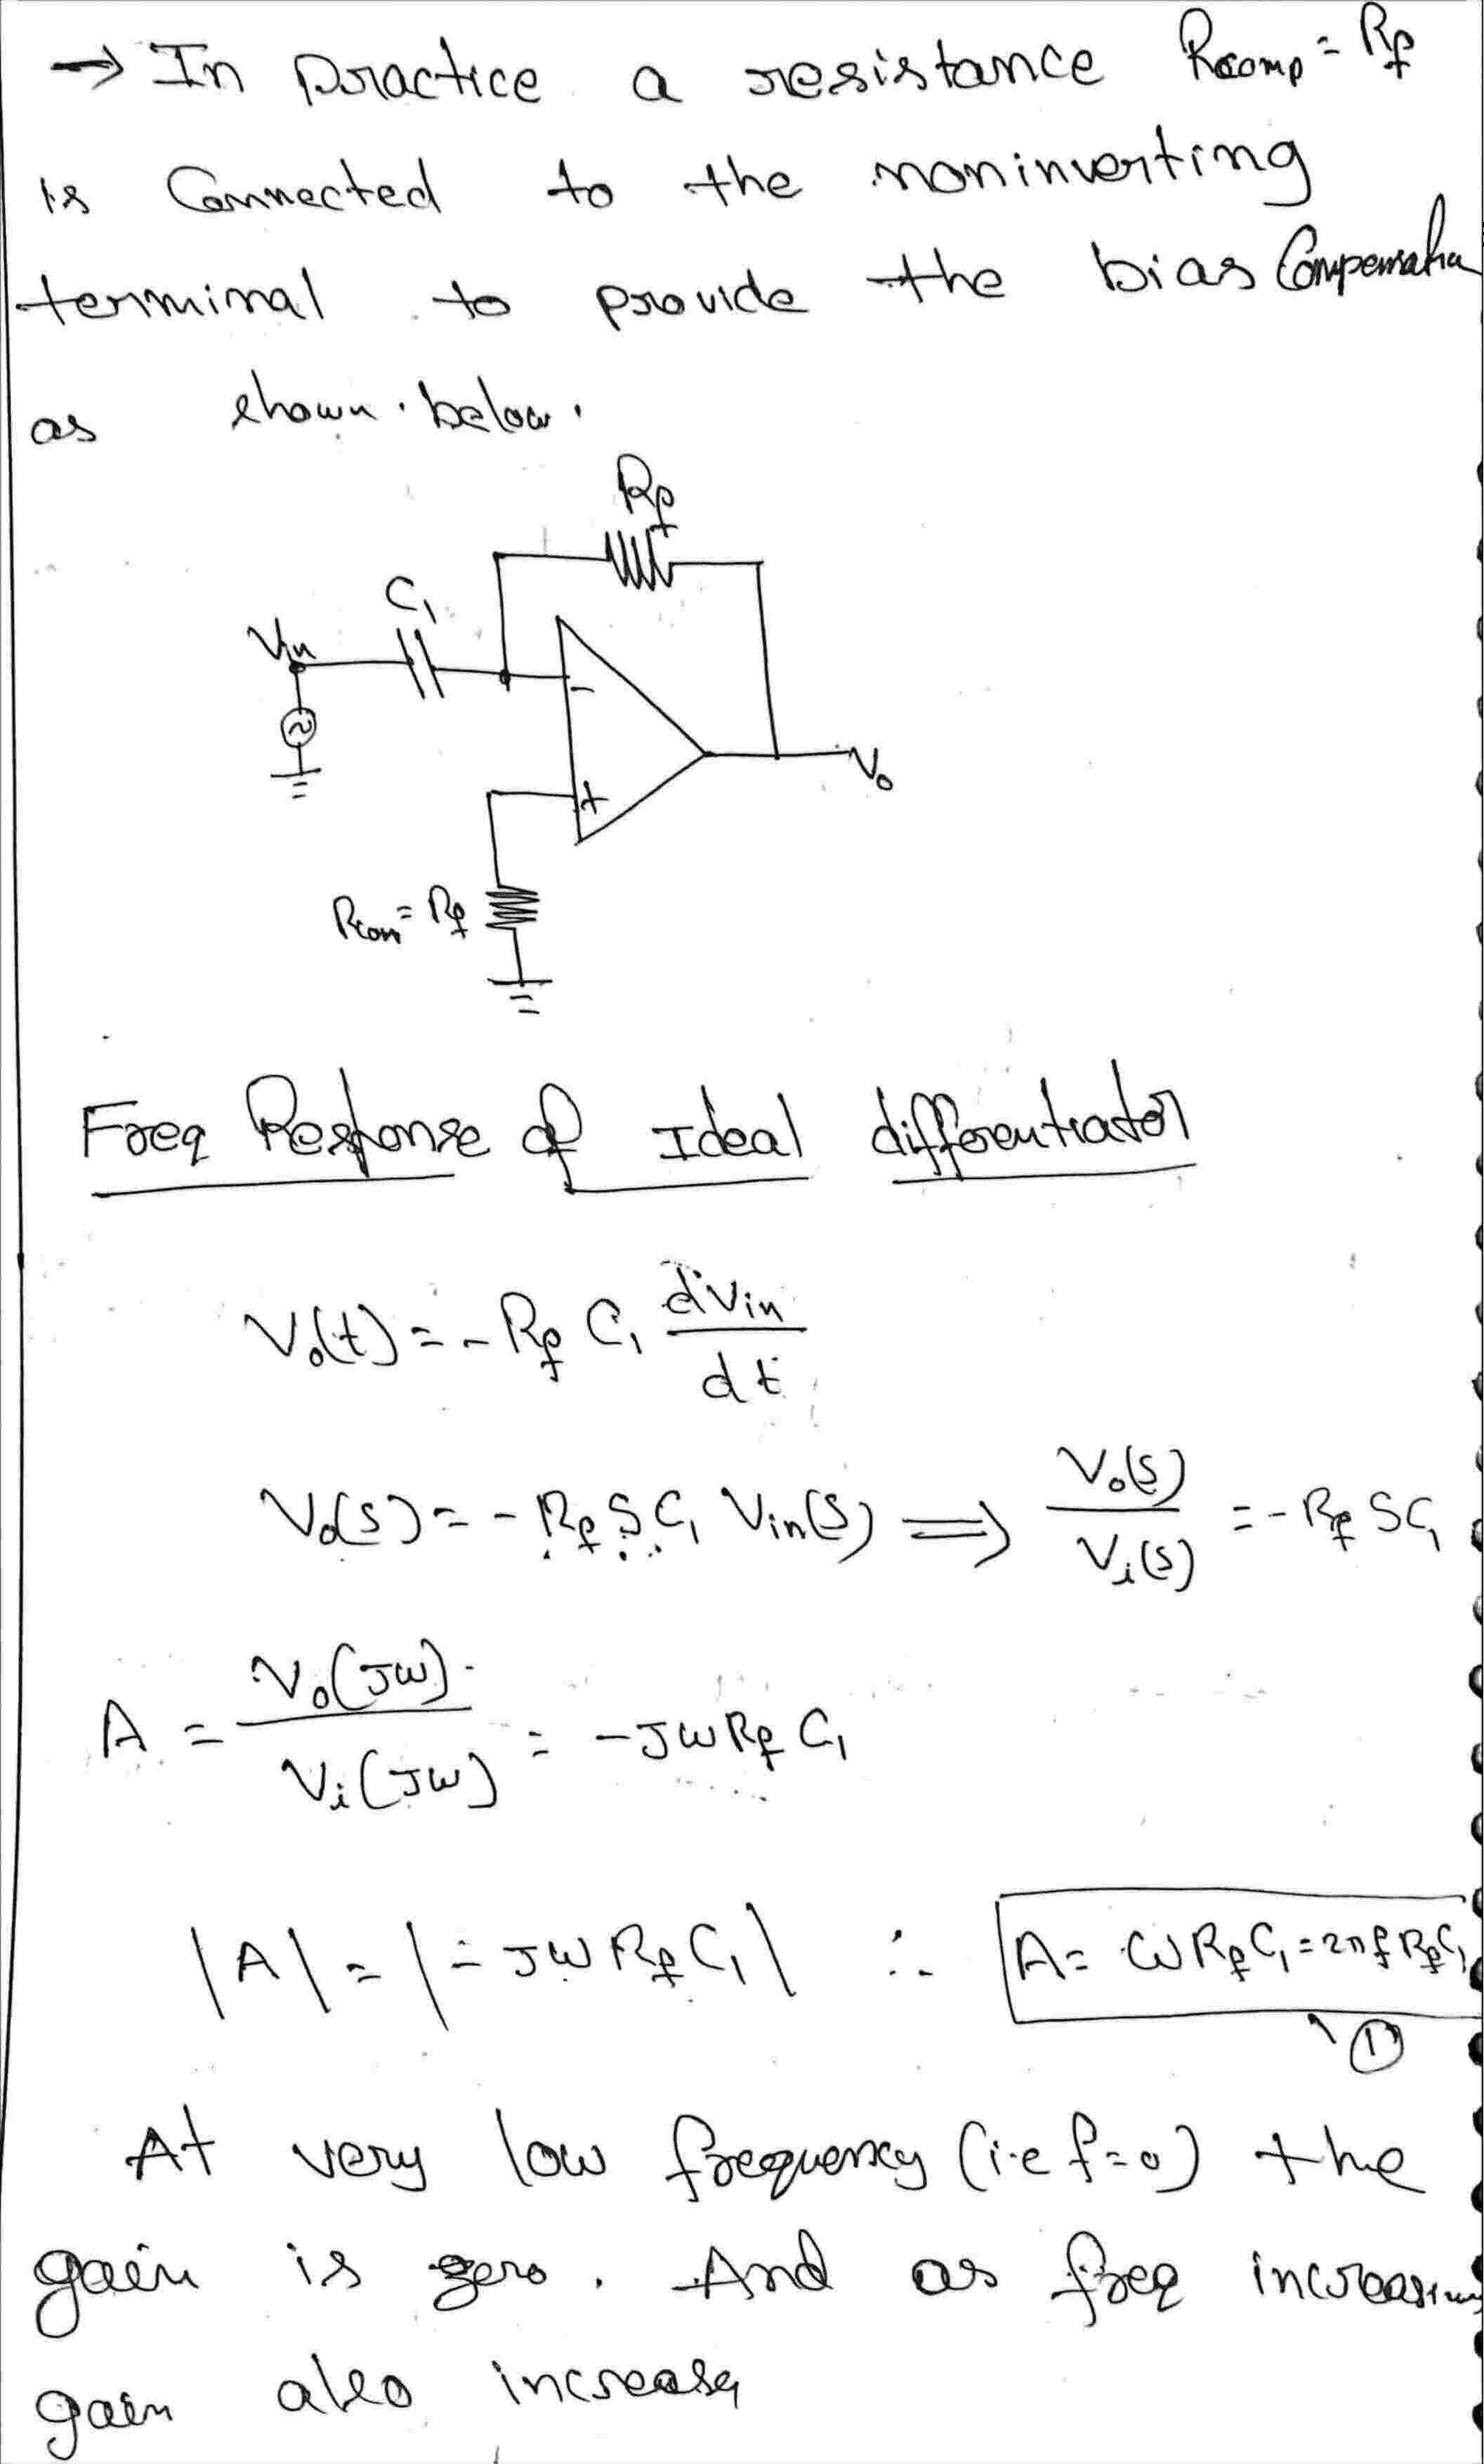 → In practice a resistance Rcomp = Rf
is Connected to the noninverting
terminal to provide the bias Compensation
as shown below.
Rf
C1
Vin
-
+
Vo
Rcom = Rf
Freq Response of Ideal differentiator
Vo(t) = - Rf C1 dVin / dt
Vo(s) = - Rf S C1 Vin(s) ⟹ Vo(s) / Vi(s) = - Rf S C1
A = Vo(Jω) / Vi(Jω) = - Jω Rf C1
|A| = |- Jω Rf C1| ∴ A = ω Rf C1 = 2πf Rf C1
①
At very low frequency (i.e f=0) the
gain is zero. And as freq increasing
gain also increases